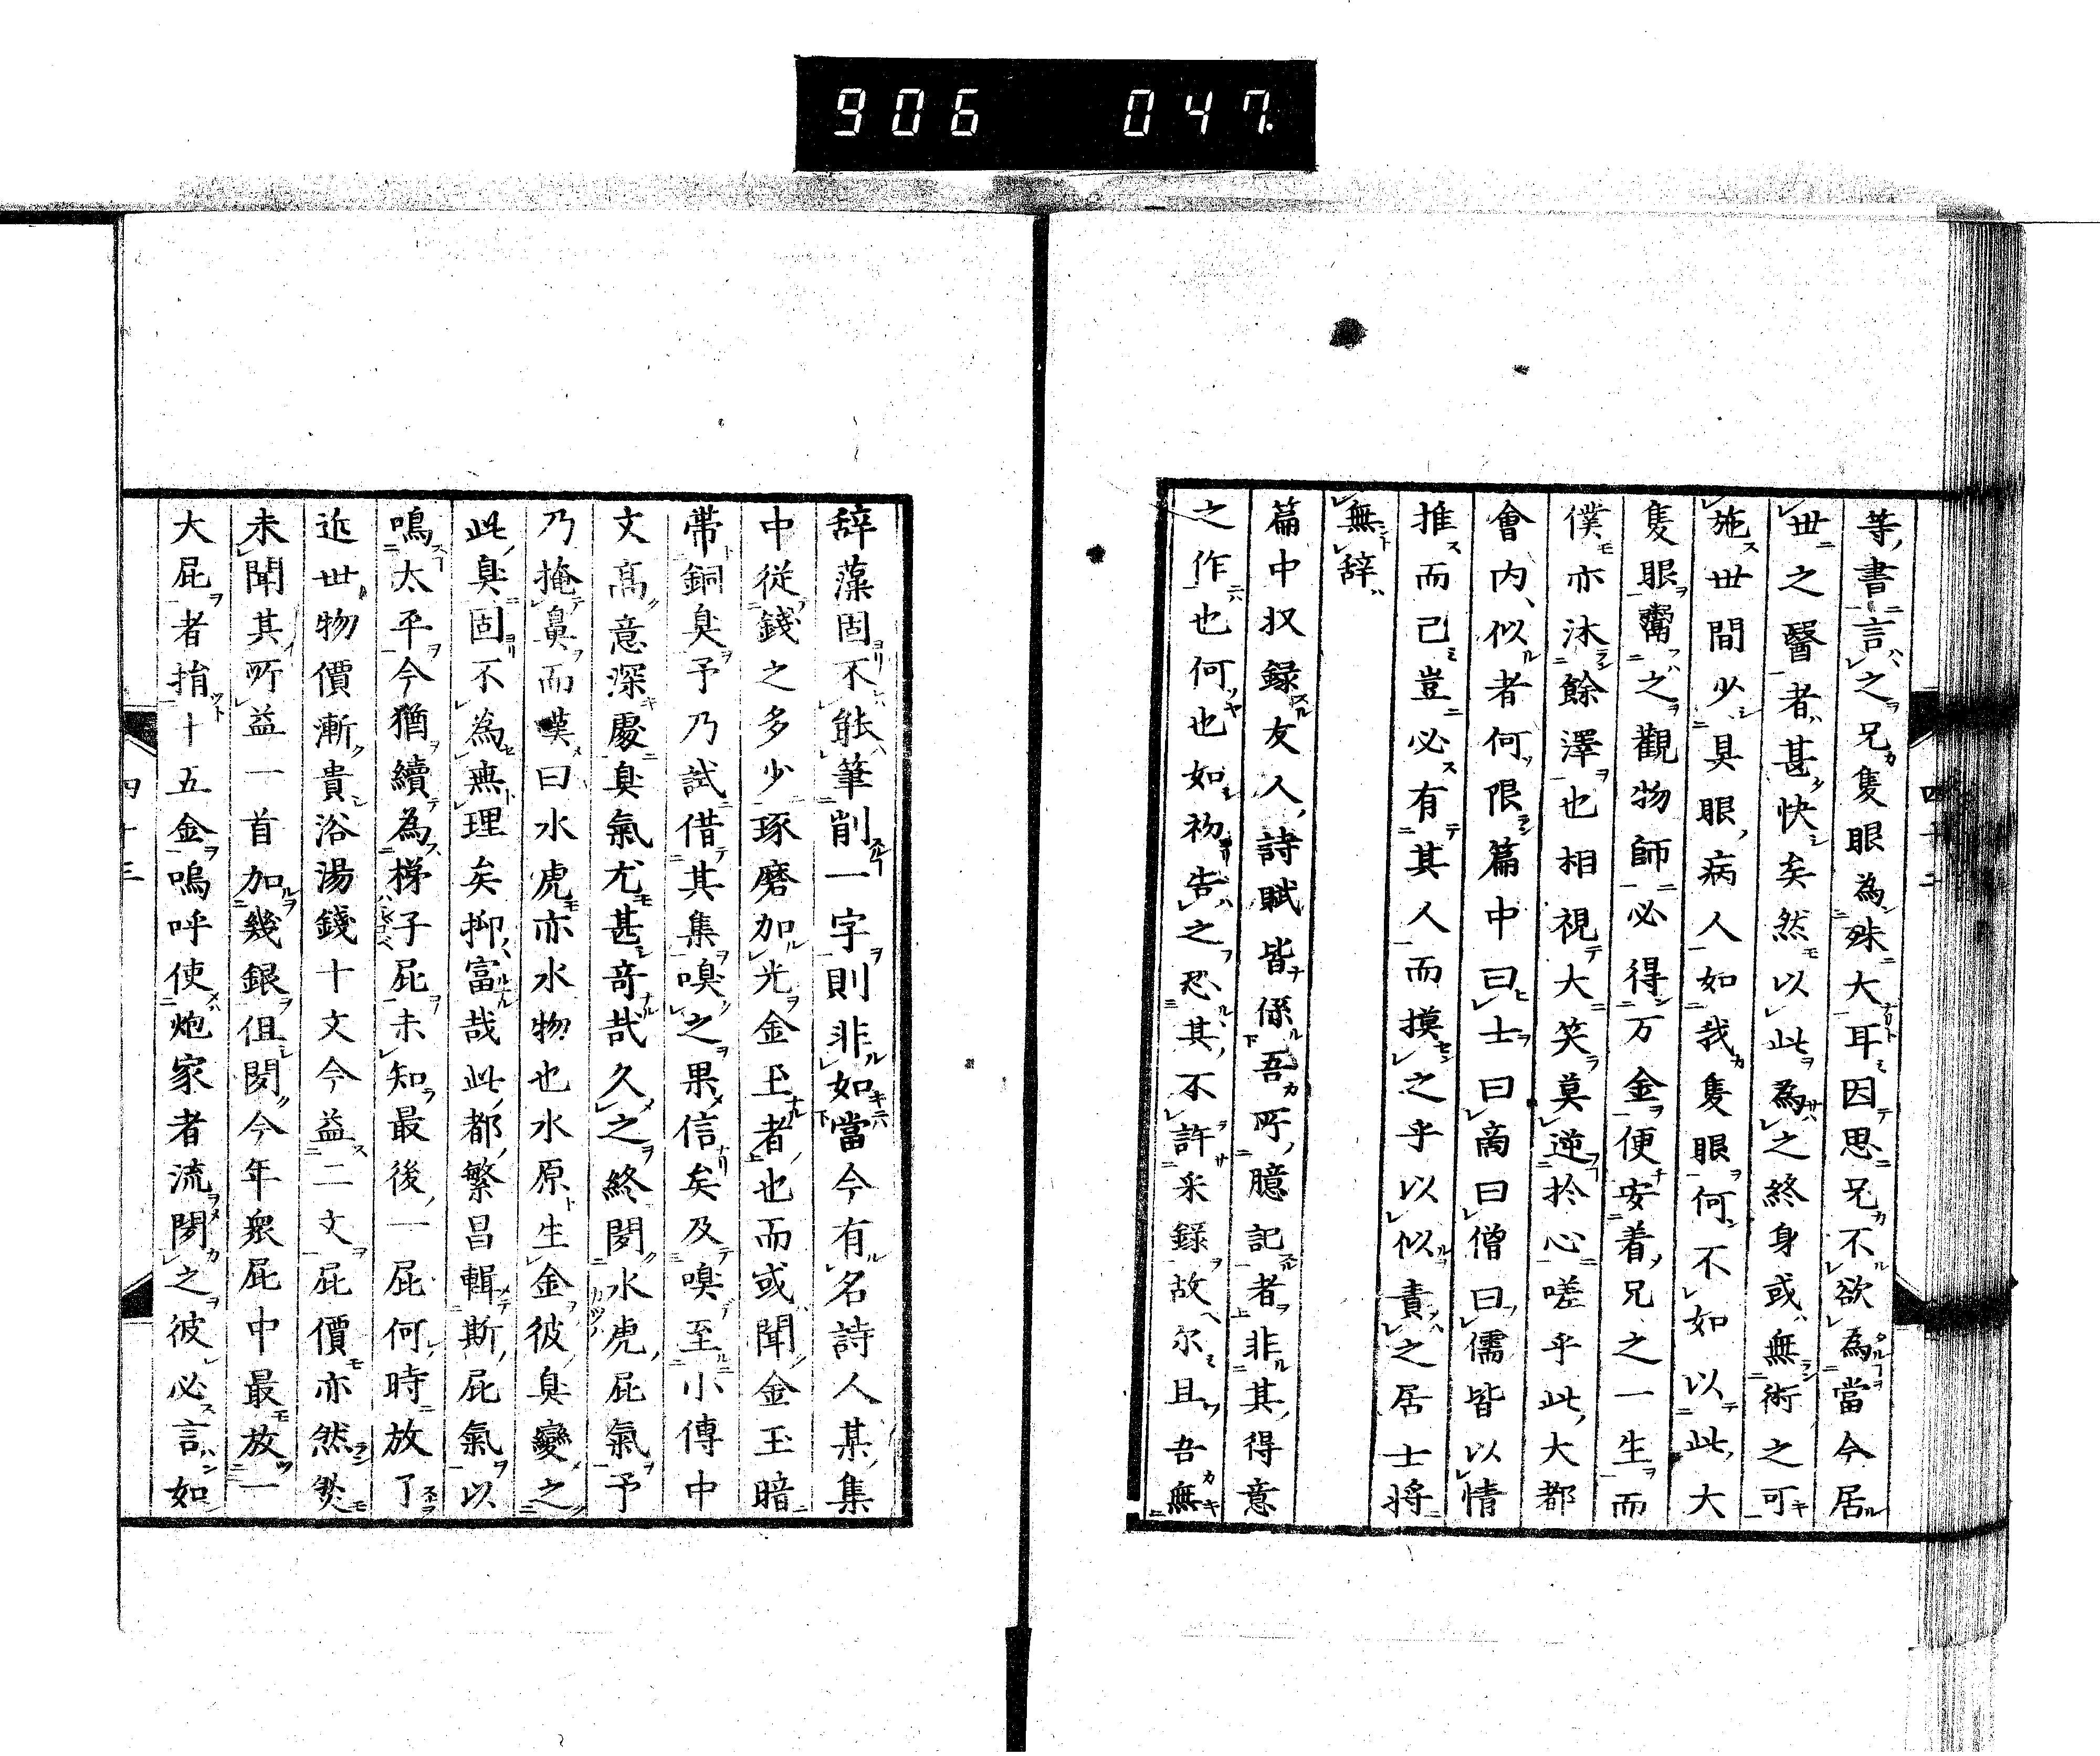 906 047
等書言之兄隻眼為殊大耳因思兄不欲為當今居
世之醫者甚快矣然以此為之終身或無術之可
施世間少具眼病人如我隻眼何不如以此大
隻眼鬻之觀物師必得万金便安着兄之一生而
僕亦沐餘澤也相視大笑莫逆於心嗟乎此大都
會內似者何限篇中曰士曰商曰僧曰儒皆以情
推而己豈必有其人而摸之乎以似責之居士將
無辞
篇中収録友人詩賦皆係吾所臆記者非其得意
之作也何也如初告之恐其不許采録故尔且吾無
四十二
辞藻固不能筆削一字則非如當今有名詩人某集
中従錢之多少琢磨加光金玉者也而或聞金玉暗
帯銅臭予乃試借其集嗅之果信矣及嗅至小傳中
文高意深處臭氣尤甚奇哉久之終閲水虎屁氣予
乃掩鼻而嘆曰水虎亦水物也水原生金彼臭變之
此臭固不為無理矣抑富哉此都繁昌輯斯屁氣以
鳴太平今猶續為梯子屁未知最後一屁何時放了
近世物價漸貴浴湯錢十文今益二文屁價亦然然
未聞其所益一首加幾銀但閲今年衆屁中最放一
大屁者捐十五金嗚呼使炮家者流閲之彼必言如
四十三